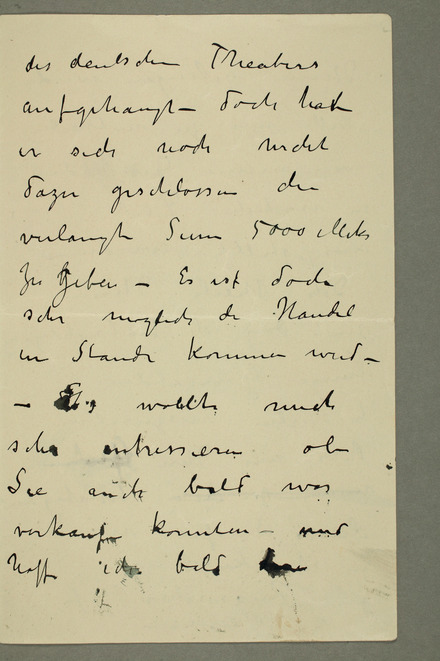 des deutschen Theaters
aufgehangt – doch hat
er sich noch nicht
dazu geschlossen die
verlangte Summ 5000 Marks
zu geben – Es ist doch
sehr moglich de Handel
in Stande kommen wird –
– Es wollte mich
sehr intressieren ob
Sie auch bald was
verkaufe konnten – und
hoffe ich bald